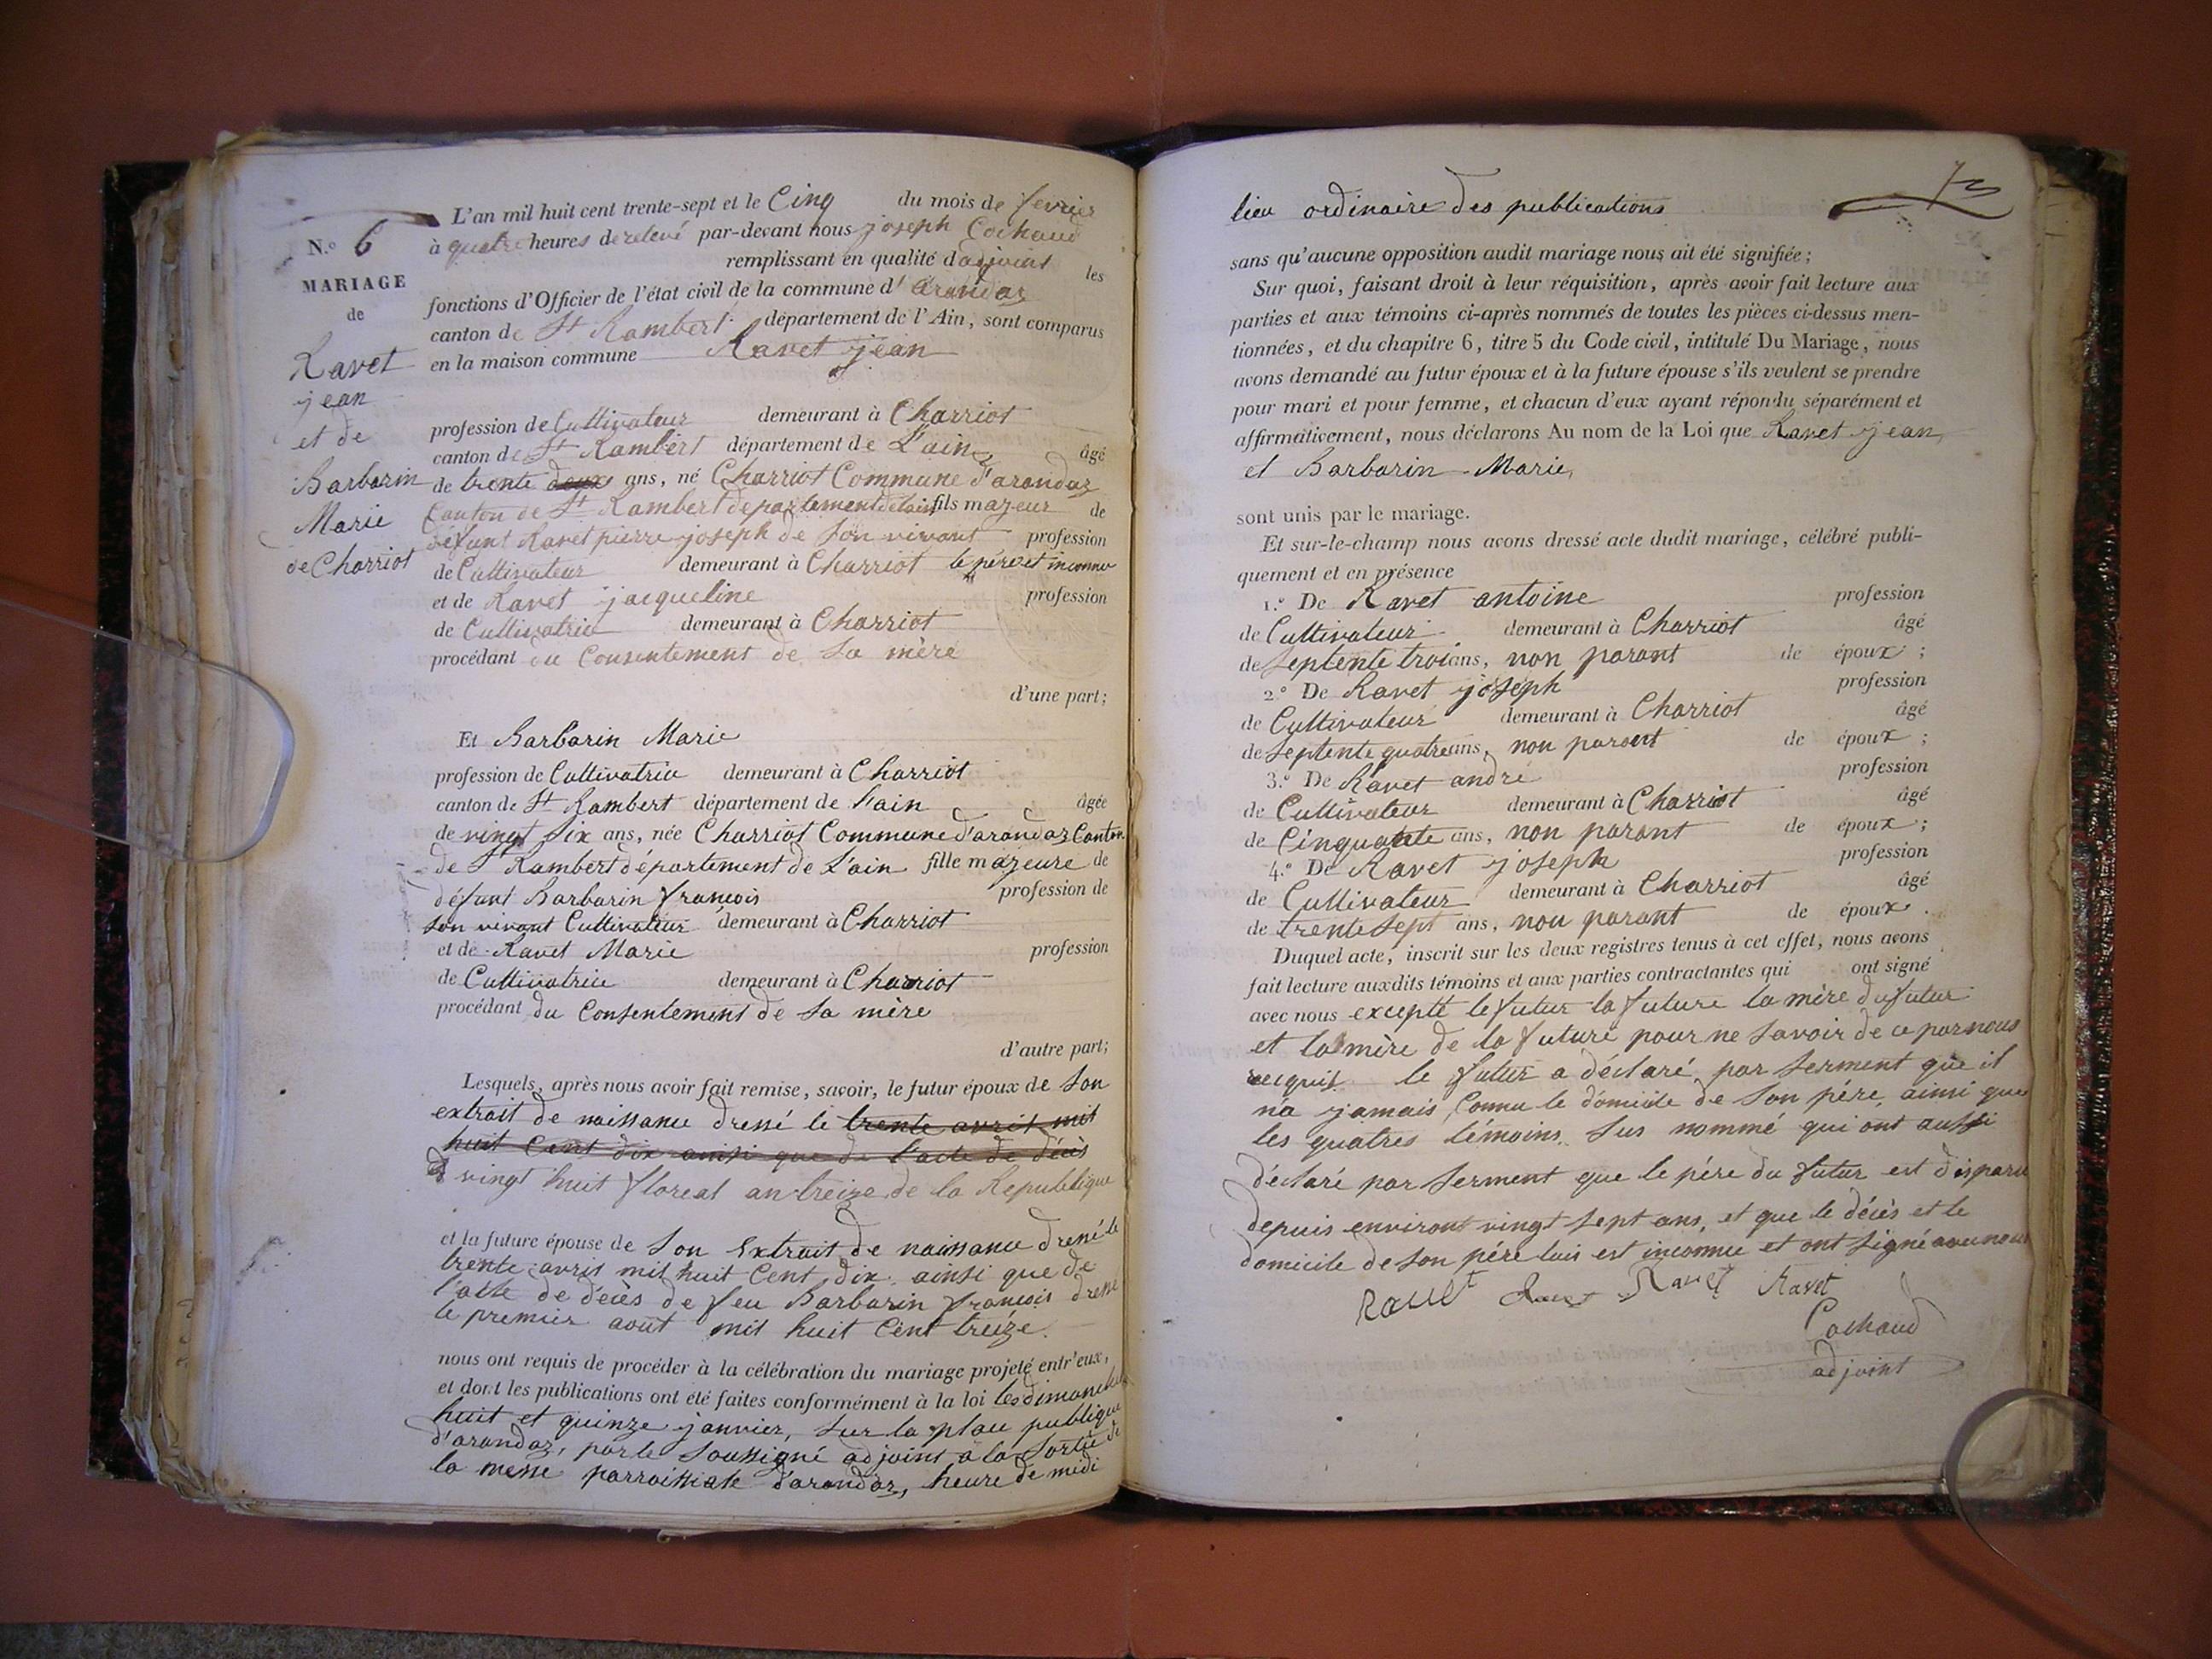 N.º 6
MARIAGE
de
Ravet
jean
et de
Barbarin
Marie
de Charriot
L'an mil huit cent trente-sept et le Cinq du mois de fevrier
à quatre heures de relevé par-devant nous joseph Cochaud
remplissant en qualité d'adjoint les
fonctions d'Officier de l'état civil de la commune d' arandaz
canton de St Rambert département de l'Ain, sont comparus
en la maison commune Ravet jean
profession de Cultivateur demeurant à Charriot
canton de St Rambert département de L'ain âgé
de trente deux ans, né Charriot Commune d'arandaz
Canton de St Rambert departement de lain fils majeur de
défunt Ravet pierre joseph de son vivant profession
de Cultivateur demeurant à Charriot le père est inconnu
et de Ravet jacqueline profession
de Cultivatrice demeurant à Charriot
procédant du Consentement de Sa mère
d'une part;
Et Barbarin Marie
profession de Cultivatrice demeurant à Charriot
canton de St Rambert département de l'ain âgée
de vingt six ans, née Charriot Commune d'arandaz Canton
de St Rambert département de L'ain fille majeure de
défunt Barbarin françois profession de
son vivant Cultivateur demeurant à Charriot
et de Ravet Marie profession
de Cultivatrice demeurant à Charriot
procédant du Consentement de Sa mère
d'autre part;
Lesquels, après nous avoir fait remise, savoir, le futur époux de Son
extrait de naissance dressé le trente avril mil
huit Cent dix ainsi que de l'acte de décès
vingt huit floreal an treize de la Republique
et la future épouse de Son Extrait de naissance dressé le
trente avril mil huit Cent dix ainsi que de
l'acte de décès de feu Barbarin françois dressé
le premier août mil huit Cent treize.
nous ont requis de procéder à la célébration du mariage projeté entr'eux,
et dont les publications ont été faites conformément à la loi les dimanches
huit et quinze janvier, sur la place publique
d'arandaz, par le Soussigné adjoint à la Sortie de
la messe parroissiale d'arandaz, heure de midi
73
lieu ordinaire des publications
sans qu'aucune opposition audit mariage nous ait été signifiée;
Sur quoi, faisant droit à leur réquisition, après avoir fait lecture aux
parties et aux témoins ci-après nommés de toutes les pièces ci-dessus men-
tionnées, et du chapitre 6, titre 5 du Code civil, intitulé Du Mariage, nous
avons demandé au futur époux et à la future épouse s'ils veulent se prendre
pour mari et pour femme, et chacun d'eux ayant répondu séparément et
affirmativement, nous déclarons Au nom de la Loi que Ravet jean,
et Barbarin Marie,
sont unis par le mariage.
Et sur-le-champ nous avons dressé acte dudit mariage, célébré publi-
quement et en présence
1.º De Ravet antoine profession
de Cultivateur demeurant à Charriot âgé
de Septente trois ans, non parant de époux ;
2.º De Ravet joseph profession
de Cultivateur demeurant à Charriot âgé
de Septente quatre ans, non parent de époux ;
3.º De Ravet andré profession
de Cultivateur demeurant à Charriot âgé
de Cinquante ans, non parant de époux ;
4.º De Ravet joseph profession
de Cultivateur demeurant à Charriot âgé
de trente sept ans, non parant de époux .
Duquel acte, inscrit sur les deux registres tenus à cet effet, nous avons
fait lecture auxdits témoins et aux parties contractantes qui ont signé
avec nous excepté le futur la future la mère du futur
et la mère de la future pour ne Savoir de ce par nous
recquis le futur a déclaré par Serment que il
na jamais Connu le domicile de Son père, ainsi que
les quatres témoins Sus nommé qui ont aussi
déclaré par Serment que le père du futur est disparu
depuis environt vingt sept ans, et que le décès et le
domicile de son père luis est inconnue et ont Signé avec nous
Ravet Ravet Ravet Ravet
Cochaud
adjoint